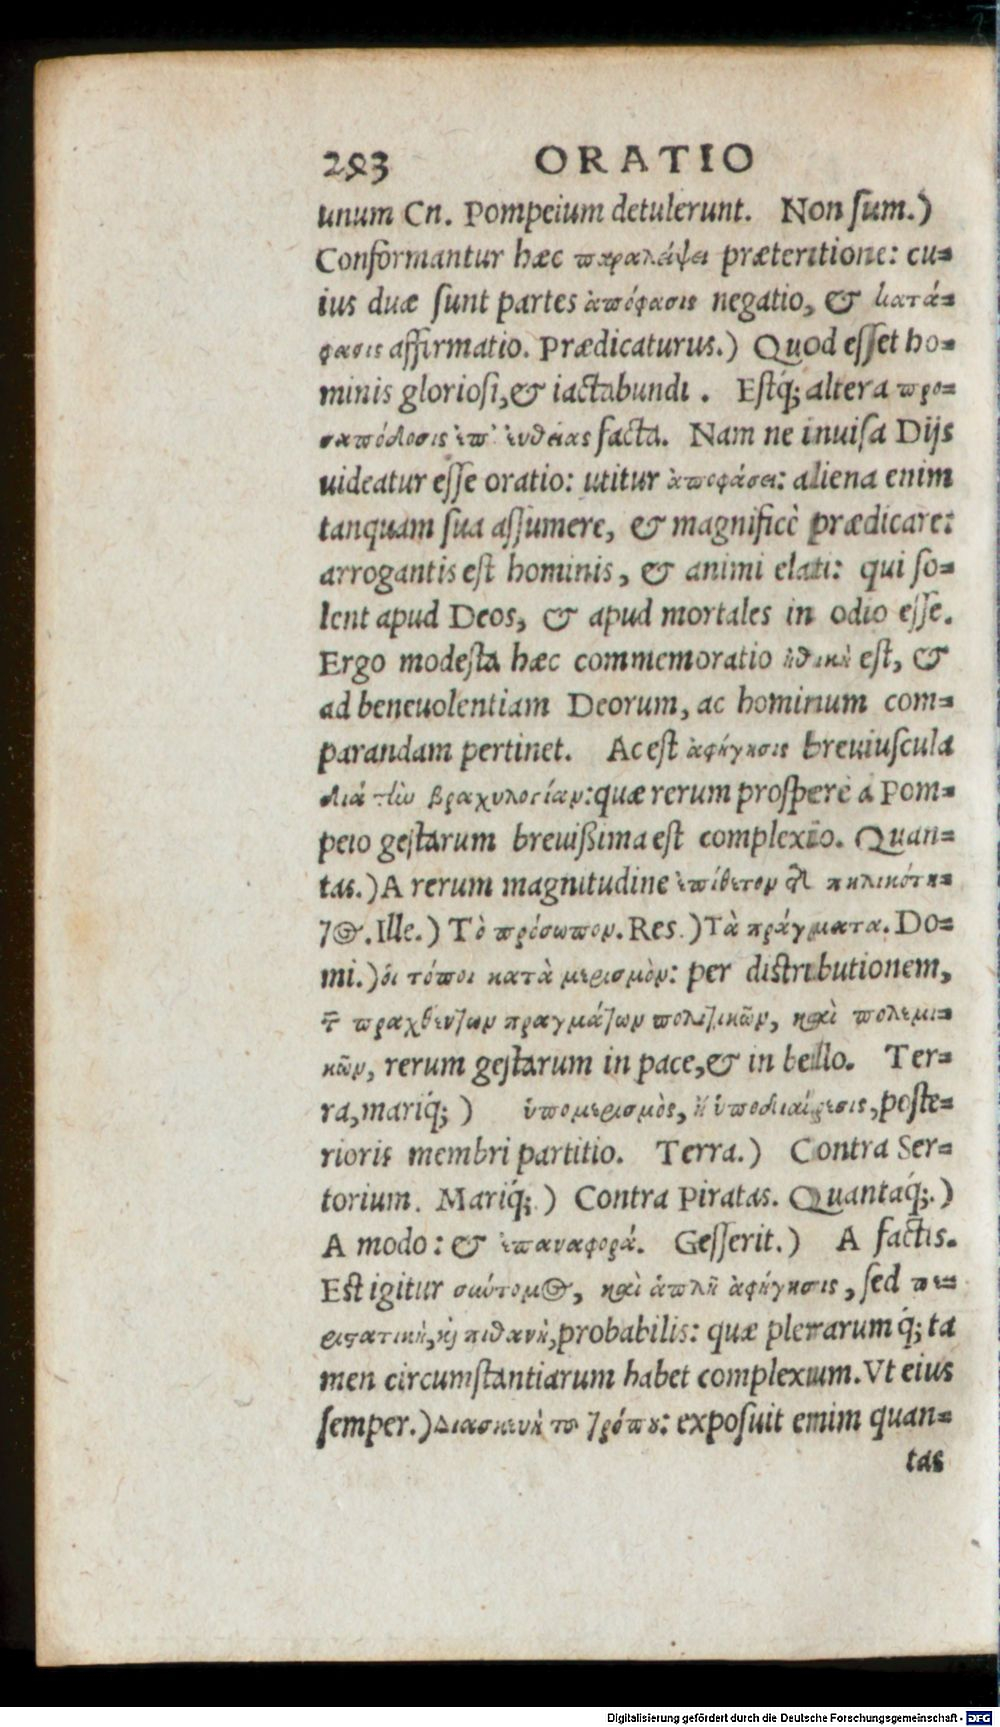 293 ORATIO
unum Cn. Pompeium detulerunt. Non sum.)
Conformantur hæc παραλείψει præteritione: cu=
ius duæ sunt partes ἀπόφασις negatio, & κατά=
φασις affirmatio. Prædicaturus.) Quod esset ho=
minis gloriosi,& iactabundi. Estq́; altera προ=
σαπόδοσις ἐπ' ἐυθείας facta. Nam ne inuisa Dijs
uideatur esse oratio: utitur ἀποφάσει: aliena enim
tanquam sua assumere, & magnificè prædicare:
arrogantis est hominis, & animi elati: qui so=
lent apud Deos, & apud mortales in odio esse.
Ergo modesta hæc commemoratio ἠθικὴ est, &
ad beneuolentiam Deorum, ac hominum com=
parandam pertinet. Ac est ἀφήγησις breuiuscula
διὰ τὴν βραχυλογίαν: quæ rerum prosperè à Pom=
peio gestarum breuißima est complexio. Quan=
tas.) A rerum magnitudine ἐπίθετον πηλικότη=
τος. Ille.) Τὸ πρόσωπον. Res.) Τὰ πράγματα. Do=
mi.) ὁι τόποι κατὰ μερισμὸν: per distributionem,
τῶν πραχθεντων πραγμάτων πολιτικῶν, καὶ πολεμι=
κῶν, rerum gestarum in pace,& in bello. Ter=
ra,mariq́; ) ὑπομερισμὸς, ἢ ὑποδιαίρεσις, poste=
rioris membri partitio. Terra.) Contra Ser=
torium. Mariq́;.) Contra Piratas. Quantaq́;.)
A modo: & ἐπαναφορά. Gesserit.) A factis.
Est igitur σύντομος, καὶ ἁπλῆ ἀφήγησις, sed πε=
ριστατικὴ, καὶ πιθανὴ, probabilis: quæ plerrarum q́; ta
men circumstantiarum habet complexum. Vt eius
semper.) Διασκευὴ το τρόπου: exposuit enim quan=
tas
Digitalisierung gefördert durch die Deutsche Forschungsgemeinschaft - DFG